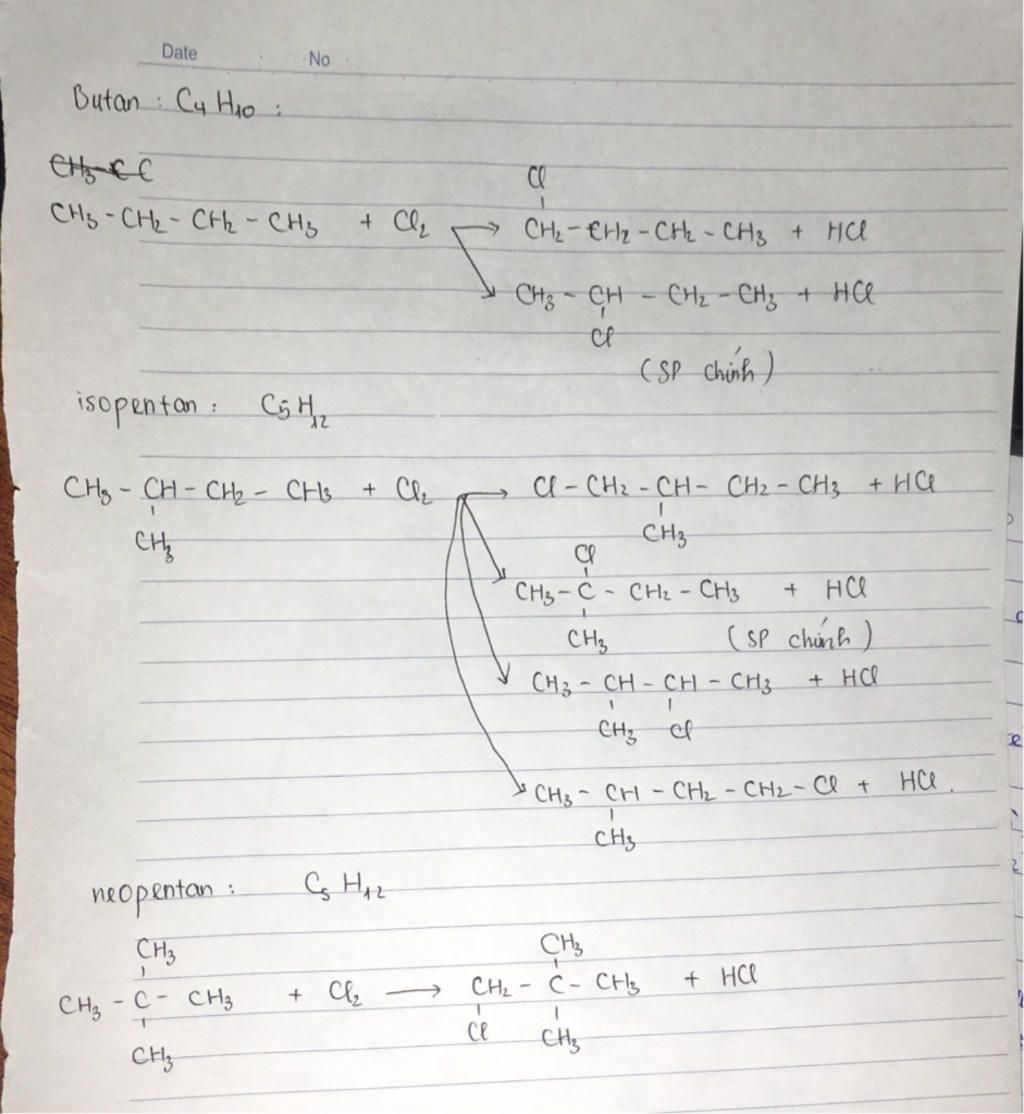 Date No
Butan : C4H10 :
CH3-CC
Cl
CH3 - CH2 - CH2 - CH3 + Cl2 → CH2 - CH2 - CH2 - CH3 + HCl
CH3 - CH - CH2 - CH3 + HCl
Cl
(SP chính)
isopentan : C5H12
CH3 - CH - CH2 - CH3 + Cl2 → Cl - CH2 - CH - CH2 - CH3 + HCl
CH3 CH3
Cl
CH3 - C - CH2 - CH3 + HCl
CH3 (SP chính)
CH3 - CH - CH - CH3 + HCl
CH3 Cl
CH3 - CH - CH2 - CH2 - Cl + HCl.
CH3
neopentan : C5H12
CH3 CH3
CH3 - C - CH3 + Cl2 → CH2 - C - CH3 + HCl
CH3 Cl CH3